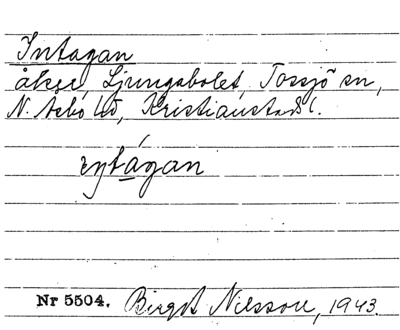 Intagan
åker, Ljungabolet, Tossjö sn,
N. Åsbo hd, Kristianstads l.
Nr 5504. Birgit Nilsson, 1943.